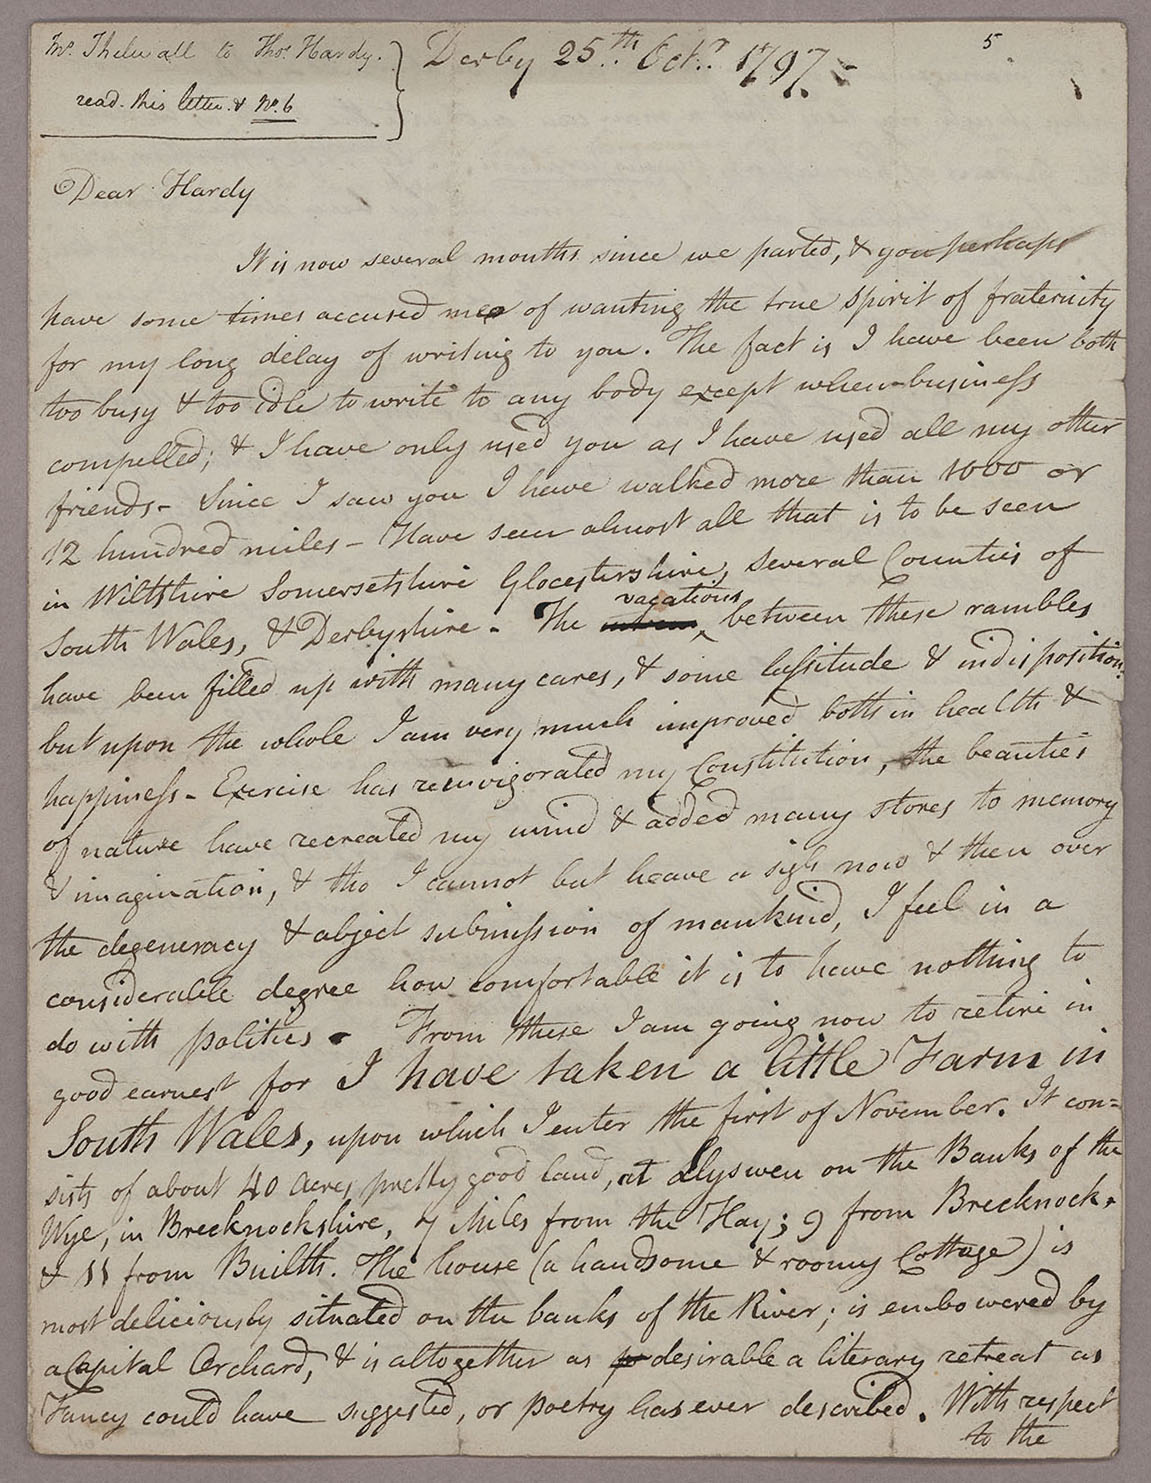 Mr. Thelwall to Thos. Hardy.
read this letter & No. 6
Derby 25th. Octr. 1797.
5
Dear Hardy
It is now several months since we parted, & you perhaps
have some times accused me of wanting the true spirit of fraternity
for my long delay of writing to you. The fact is I have been both
too busy & too idle to write to any body except when business
compelled; & I have only used you as I have used all my other
friends - Since I saw you I have walked more than 1000 or
12 hundred miles - Have seen almost all that is to be seen
in Wiltshire Somersetshire Glocestershire, several Counties of
South Wales, & Derbyshire. The vacations between these rambles
have been filled up with many cares, & some lassitude & indisposition:
but upon the whole I am very much improved both in health &
happiness - Exercise has reinvigorated my Constitution, the beauties
of nature have recreated my mind & added many stores to memory
& imagination, & tho I cannot but heave a sigh now & then over
the degeneracy & abject submission of mankind, I feel in a
considerable degree how comfortable it is to have nothing to
do with politics - From these I am going now to retire in
good earnest for I have taken a little Farm in
South Wales, upon which I enter the first of November. It con=
sists of about 40 Acres pretty good land, at Llyswen on the Banks of the
Wye, in Brecknockshire, 7 Miles from the Hay; 9 from Brecknock.
& 11 from Builth. The house (a handsome & roomy Cottage) is
most deliciously situated on the banks of the River; is embowered by
a Capital Orchard, & is altogether as desirable a literary retreat as
Fancy could have suggested, or poetry has ever described. With respect
to the